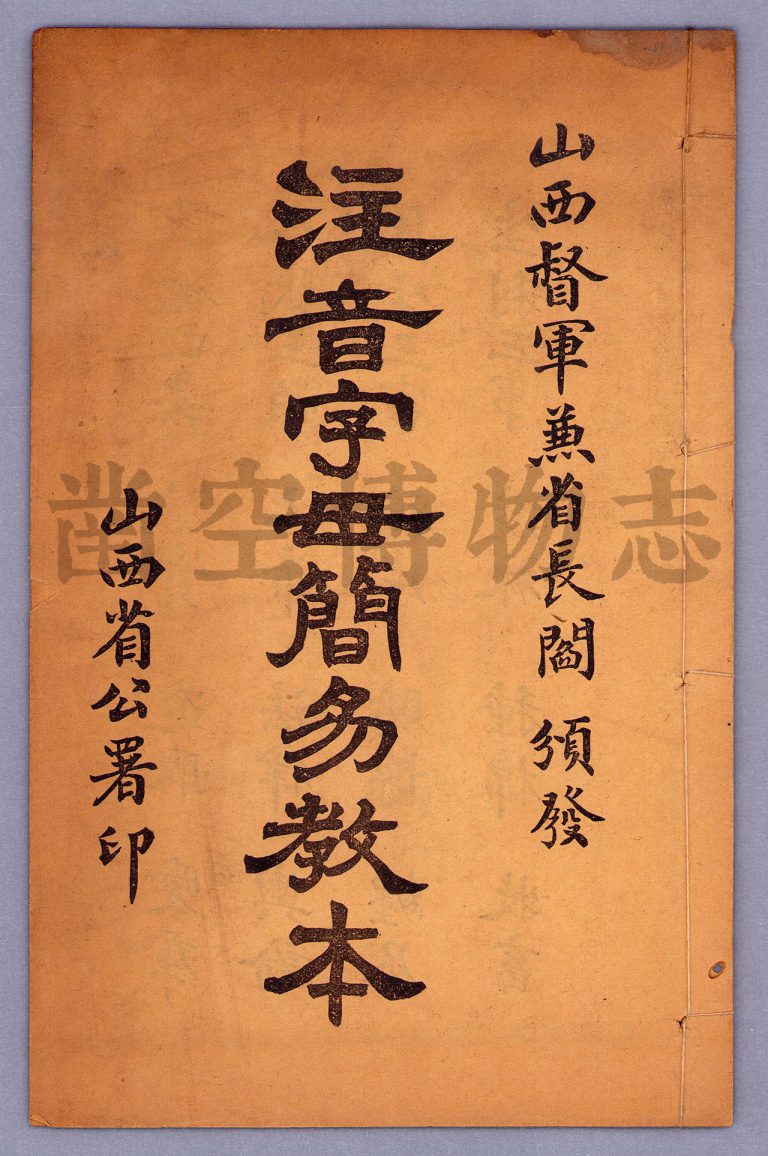 山西督軍兼省長閻 頒發
注音字母簡易教本
山西省公署印
凿空博物志